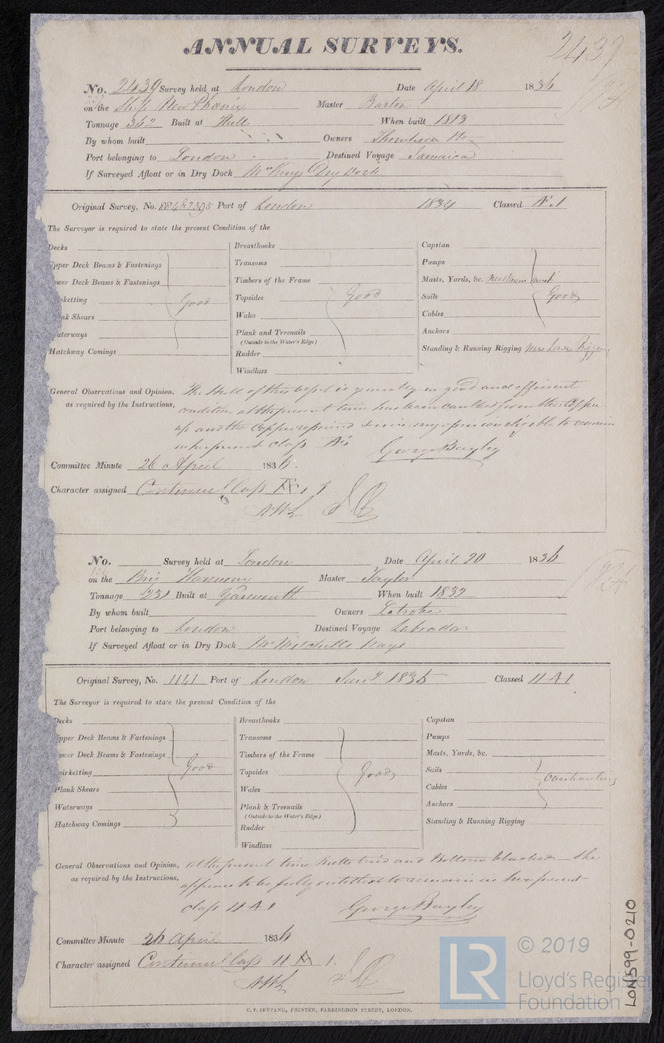 ANNUAL SURVEYS.
2439
No. 2439 Survey held at London Date April 18 1836
on the Ship Master Baxter
Tonnage 342 Built at Hull When built 1813
By whom built Owners
Port belonging to London Destined Voyage Jamaica
If Surveyed Afloat or in Dry Dock Dry Dock
Original Survey, No. Port of London 1834 Classed
The Surveyor is required to state the present Condition of the
Decks Breasthooks Capstan
Upper Deck Beams & Fastenings Transoms Pumps
Lower Deck Beams & Fastenings Timbers of the Frame Masts, Yards, &c.
Spirketting Good Topsides Good Sails Good
Plank Shears Wales Cables
Waterways Plank and Treenails Anchors
(Outside to the Water's Edge)
Hatchway Comings Rudder Standing & Running Rigging
Windlass
General Observations and Opinion, The Hull of this vessel is generally in good and efficient
as required by the Instructions, condition at the present time has been caulked from the
up and the Copper repaired & in my opinion eligible to remain
in her present class
George Bayley
Committee Minute 26 April 1836
Character assigned Continued Class
No. Survey held at London Date April 20 1836
on the Brig Harmony Master Taylor
Tonnage 231 Built at Yarmouth When built 1832
By whom built Owners Latrobe
Port belonging to London Destined Voyage Labrador
If Surveyed Afloat or in Dry Dock Mr Mitchells Ways
Original Survey, No. 1141 Port of London 1835 Classed 11 A 1
The Surveyor is required to state the present Condition of the
Decks Breasthooks Capstan
Upper Deck Beams & Fastenings Transoms Pumps
Lower Deck Beams & Fastenings Timbers of the Frame Masts, Yards, &c.
Spirketting Good Topsides Good Sails Overhauling
Plank Shears Wales Cables
Waterways Plank & Treenails Anchors
(Outside to the Water's Edge)
Hatchway Comings Rudder Standing & Running Rigging
Windlass
General Observations and Opinion, At the present time and Bottom blacked — She
as required by the Instructions, appears to be fully entitled to remain in her present
class 11 A 1 George Bayley
Committee Minute 26 April 1836
Character assigned Continued Class 11 A 1.
C. F. SEYFANG, PRINTER, FARRINGDON STREET, LONDON.
LON599-0210
LR © 2019
Lloyd's Register
Foundation